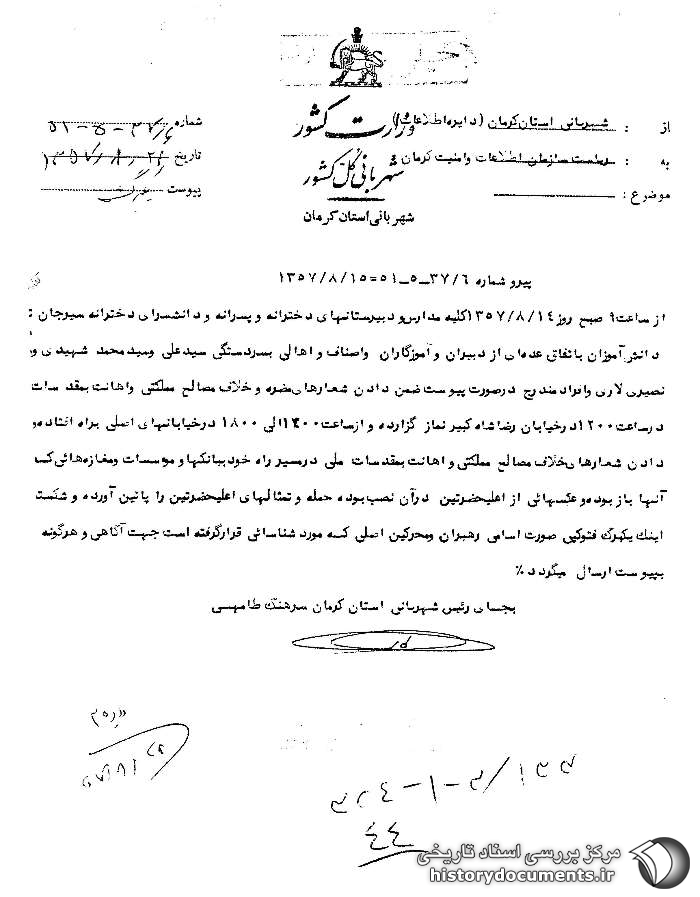 وزارت کشور
شهربانی کل کشور
شهربانی استان کرمان
از : شهربانی استان کرمان (دایره اطلاعات)
به : ریاست سازمان اطلاعات و امنیت کرمان
موضوع :
شماره ۵۱-۵-۳۷/۶
تاریخ
پیوست
پیرو شماره ۳۷/۶-۵-۵۱=۱۳۵۷/۸/۱۵
از ساعت۹ صبح روز ۱۳۵۷/۸/۱۴کلیه مدارس و دبیرستانهای دخترانه و پسرانه و دانشسرای دخترانه سیرجان
دانش آموزان باتفاق عده‌ای از دبیران و آموزگاران واصناف و اهالی بسردستگی سیدعلی وسید محمد شهیدی
نصیری لاری وافراد مندرج درصورت پیوست ضمن دادن شعارهای مضره و خلاف مصالح مملکتی واهانت بمقد سات
درساعت۱۲۰۰درخیابان رضا شاه کبیر نماز گزارده و ازساعت۱۴۰۰الی ۱۸۰۰ درخیابانهای اصلی براه افتاده‌و
دادن شعارهای خلاف مصالح مملکتی و اهانت بمقدسات ملی درمسیر راه خود ببانکها و موسسات ومغازه‌هائی که
آنها باز بوده‌و عکسهائی از اعلیحضرتین درآن نصب بوده حمله و تمثالهای اعلیحضرتین را پائین آورده و شکست
اینک یکبرگ فتوکپی صورت اسامی رهبران ومحرکین اصلی که مورد شناسائی قرارگرفته است جهت آگاهی و هرگونه
بپیوست ارسال میگردد٪
بجای رئیس شهربانی استان کرمان سرهنگ طامهسی
۳۲۴-۱-۳/۱۳۳
۴۴
مرکز بررسی اسناد تاریخی
historydocuments.ir